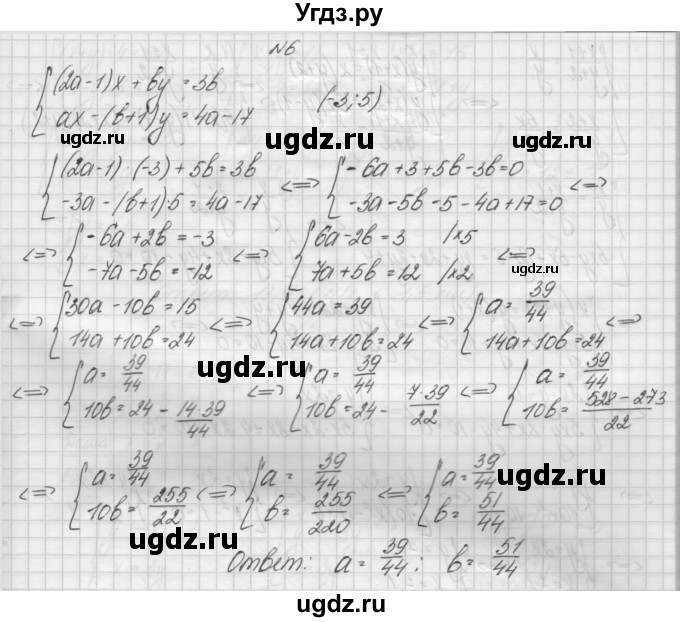 Угдз.ру
№6
{ (2a-1)x + by = 3b
ax - (b+1)y = 4a-17 (-3; 5)
ugdz.ru ugdz.ru
{ (2a-1)·(-3) + 5b = 3b
-3a - (b+1)·5 = 4a-17 <=> { -6a+3+5b-3b=0
-3a-5b-5-4a+17=0 <=>
<=> { -6a+2b = -3
-7a-5b = -12 <=> { 6a-2b = 3 |x5
7a+5b = 12 |x2 ugdz.ru
<=> { 30a-10b = 15
14a+10b = 24 <=> { 44a = 39
14a+10b = 24 <=> { a = 39/44
14a+10b = 24 <=>
ugdz.ru
<=> { a = 39/44
10b = 24 - 14·39/44 <=> { a = 39/44
10b = 24 - 7·39/22 <=> { a = 39/44
10b = 528-273/22
<=> { a = 39/44
10b = 255/22 <=> { a = 39/44
b = 255/220 <=> { a = 39/44
b = 51/44
ugdz.ru ugdz.ru
Ответ: a = 39/44; b = 51/44
ugdz.ru ugdz.ru
ugdz.ru